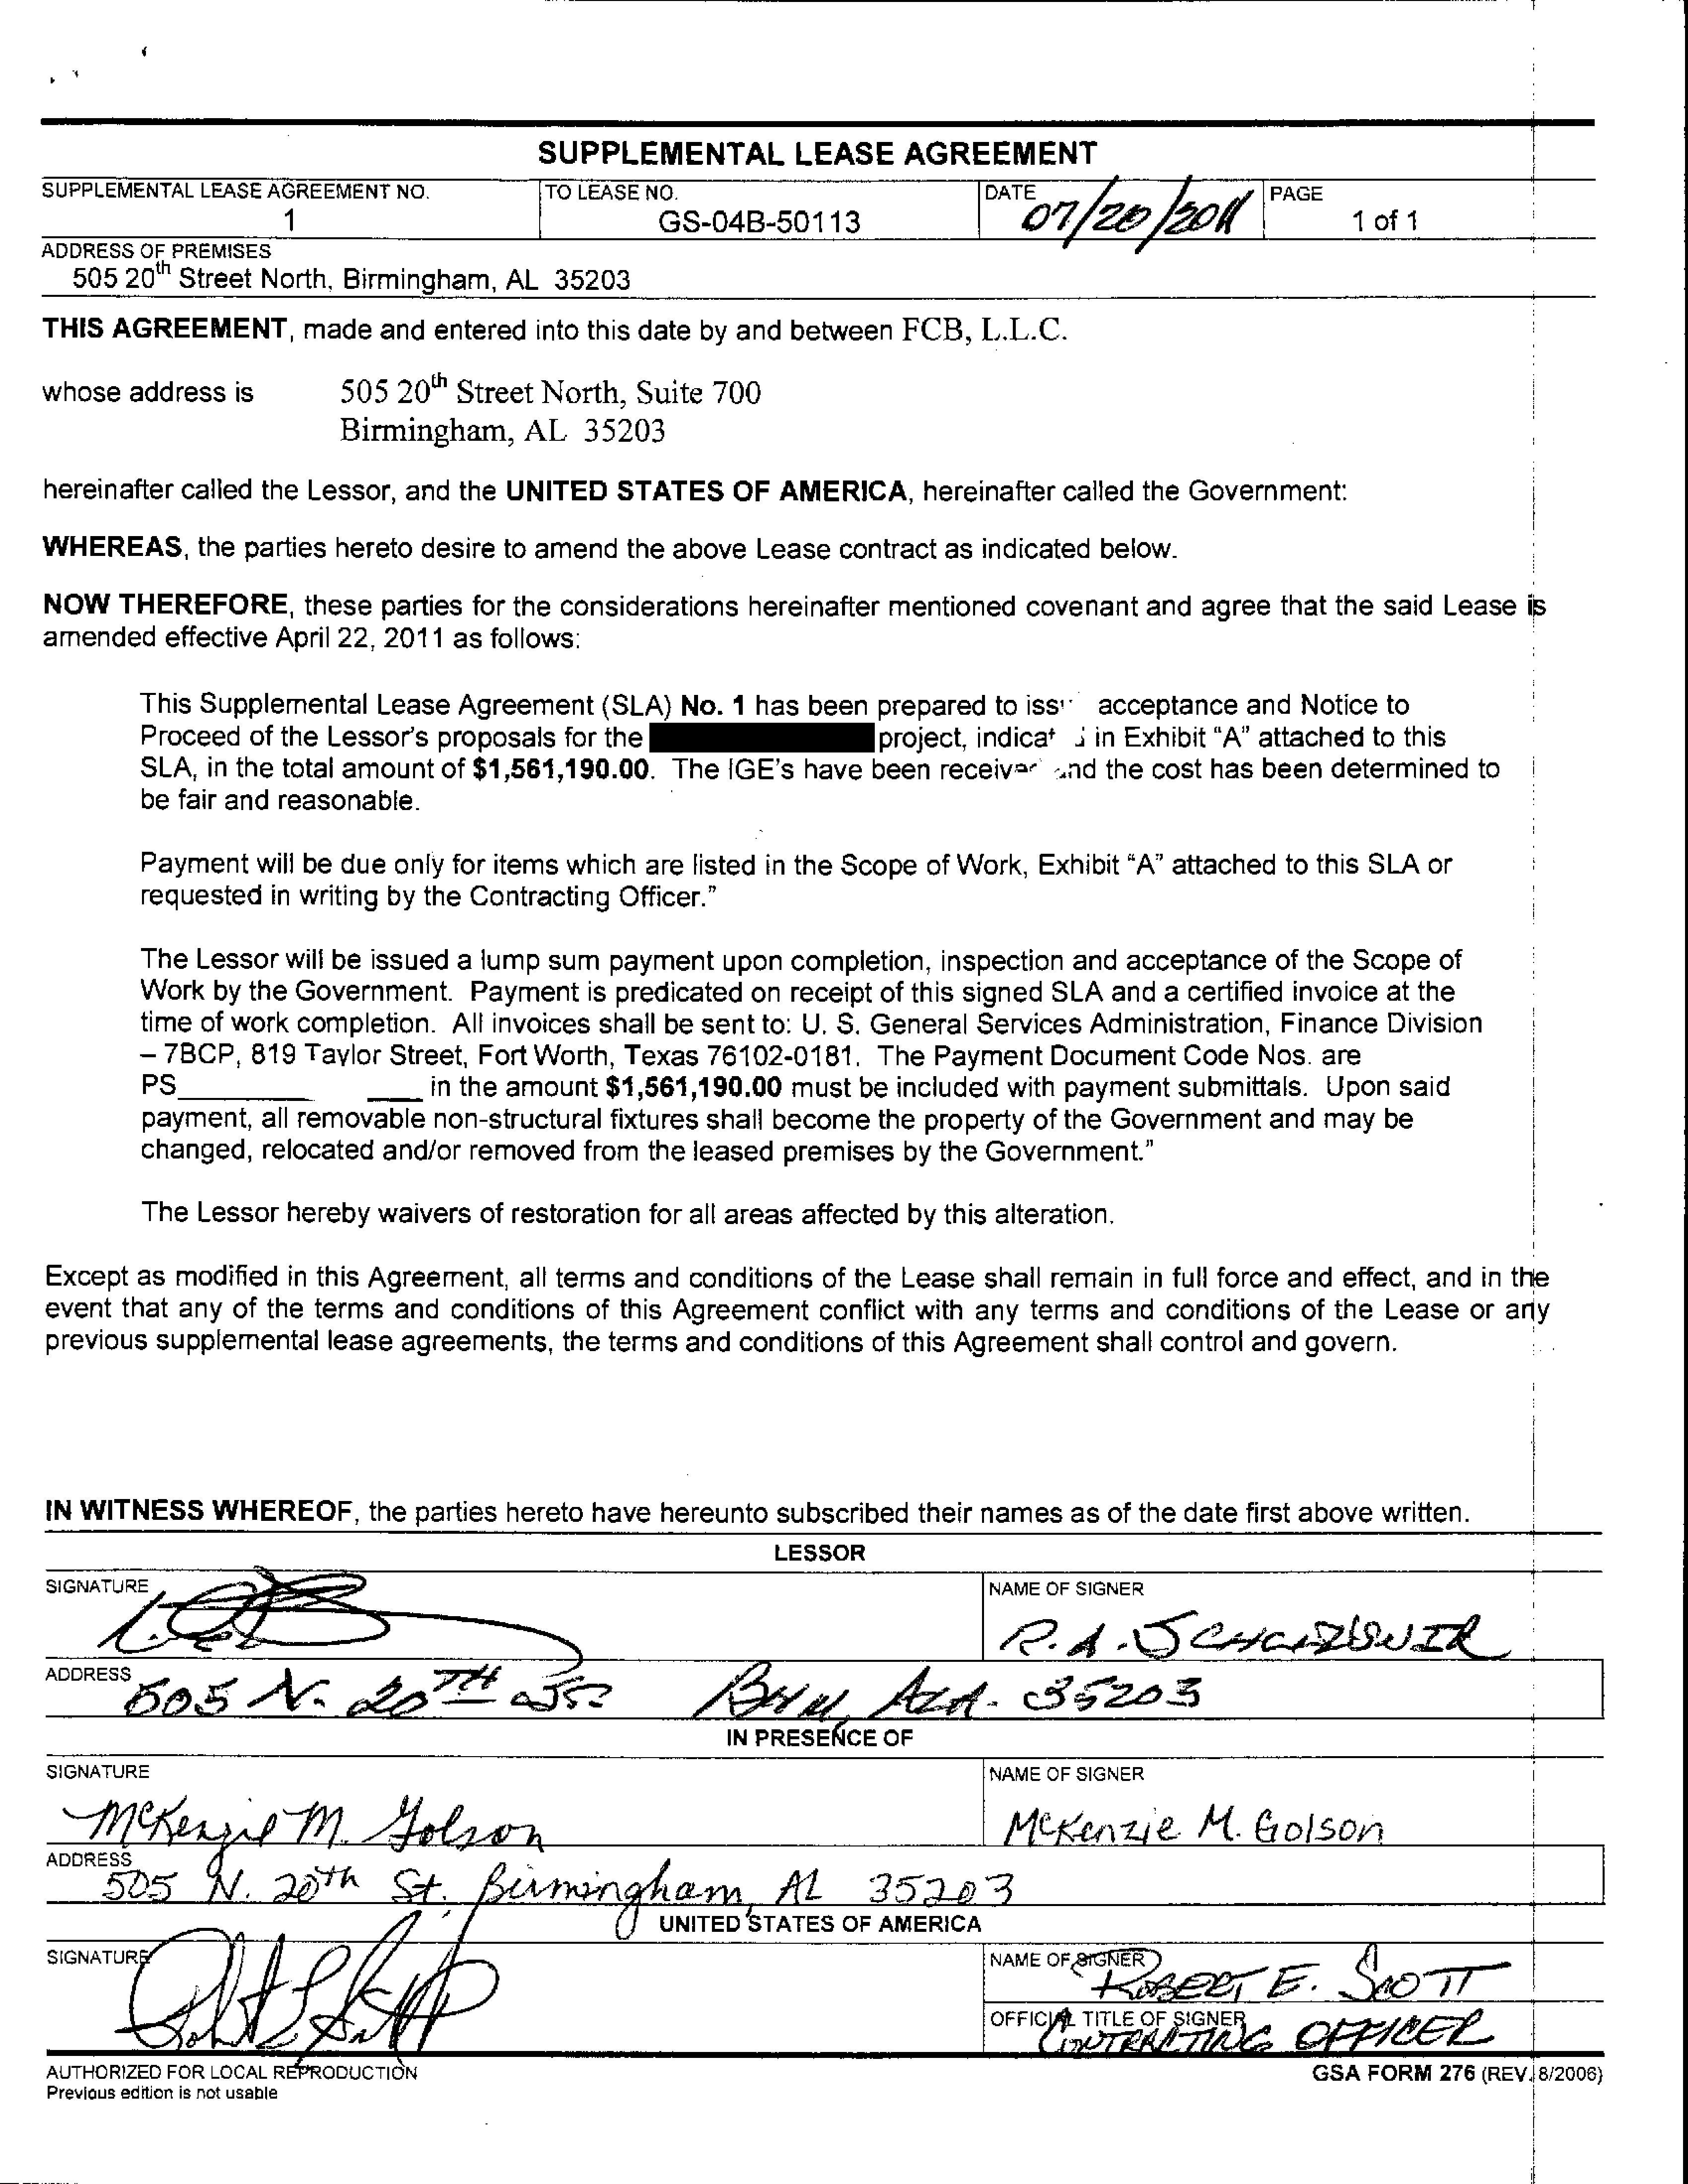 SUPPLEMENTAL LEASE AGREEMENT
SUPPLEMENTAL LEASE AGREEMENT NO. TO LEASE NO. DATE PAGE
1 GS-04B-50113 07/20/2011 1 of 1
ADDRESS OF PREMISES
505 20th Street North, Birmingham, AL 35203
THIS AGREEMENT, made and entered into this date by and between FCB, L.L.C.
whose address is 505 20th Street North, Suite 700
Birmingham, AL 35203
hereinafter called the Lessor, and the UNITED STATES OF AMERICA, hereinafter called the Government:
WHEREAS, the parties hereto desire to amend the above Lease contract as indicated below.
NOW THEREFORE, these parties for the considerations hereinafter mentioned covenant and agree that the said Lease is
amended effective April 22, 2011 as follows:
This Supplemental Lease Agreement (SLA) No. 1 has been prepared to iss acceptance and Notice to
Proceed of the Lessor's proposals for the project, indicat in Exhibit "A" attached to this
SLA, in the total amount of $1,561,190.00. The IGE's have been receiv and the cost has been determined to
be fair and reasonable.
Payment will be due only for items which are listed in the Scope of Work, Exhibit "A" attached to this SLA or
requested in writing by the Contracting Officer."
The Lessor will be issued a lump sum payment upon completion, inspection and acceptance of the Scope of
Work by the Government. Payment is predicated on receipt of this signed SLA and a certified invoice at the
time of work completion. All invoices shall be sent to: U. S. General Services Administration, Finance Division
– 7BCP, 819 Taylor Street, Fort Worth, Texas 76102-0181. The Payment Document Code Nos. are
PS in the amount $1,561,190.00 must be included with payment submittals. Upon said
payment, all removable non-structural fixtures shall become the property of the Government and may be
changed, relocated and/or removed from the leased premises by the Government."
The Lessor hereby waivers of restoration for all areas affected by this alteration.
Except as modified in this Agreement, all terms and conditions of the Lease shall remain in full force and effect, and in the
event that any of the terms and conditions of this Agreement conflict with any terms and conditions of the Lease or any
previous supplemental lease agreements, the terms and conditions of this Agreement shall control and govern.
IN WITNESS WHEREOF, the parties hereto have hereunto subscribed their names as of the date first above written.
LESSOR
SIGNATURE NAME OF SIGNER
R.A.
ADDRESS
505 N. 20TH 35203
IN PRESENCE OF
SIGNATURE NAME OF SIGNER
McKenzie M. Golson McKenzie M. Golson
ADDRESS
505 N. 20th St. Birmingham, AL 35203
UNITED STATES OF AMERICA
SIGNATURE NAME OF SIGNER
ROBERT E. SCOTT
OFFICIAL TITLE OF SIGNER
CONTRACTING OFFICER
AUTHORIZED FOR LOCAL REPRODUCTION GSA FORM 276 (REV. 8/2006)
Previous edition is not usable